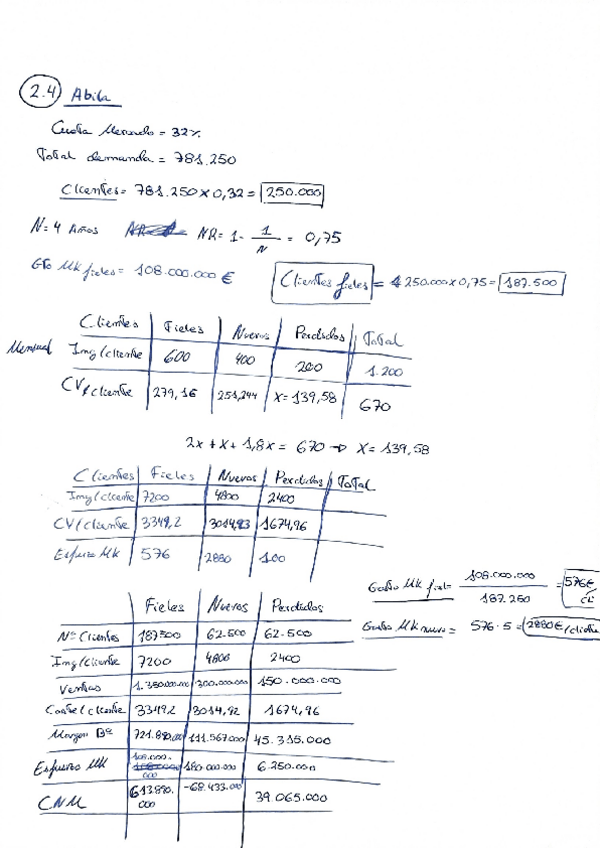 2.4 Abila
Cuota Mercado = 32%
Total demanda = 781.250
Clientes = 781.250 x 0,32 = 250.000
N = 4 años NR = 1 - 1/N = 0,75
Gto Mk fieles = 108.000.000 €
Clientes fieles = 250.000 x 0,75 = 187.500
Clientes | Fieles | Nuevos | Perdidos | Total
Mensual Ing/cliente | 600 | 400 | 200 | 1.200
CV/cliente | 279,16 | 251,244 | x = 139,58 | 670
2x + x + 1,8x = 670 → x = 139,58
Clientes | Fieles | Nuevos | Perdidos | Total
Ing/cliente | 7200 | 4800 | 2400
CV/cliente | 3349,2 | 3014,93 | 1674,96
Esfuerzo Mk | 576 | 2880 | 100
Gasto Mk fiel = 108.000.000 / 187.250 = 576€/cli
Gasto Mk nuevo = 576 · 5 = 2880€/cliente
Fieles | Nuevos | Perdidos
Nº Clientes | 187500 | 62.500 | 62.500
Ing/Cliente | 7200 | 4800 | 2400
Ventas | 1.350.000.000 | 300.000.000 | 150.000.000
Coste/cliente | 3349,2 | 3014,92 | 1674,96
Margen Bº | 111.567.000 | 45.315.000
Esfuerzo Mk | 108.000.000 | 180.000.000 | 6.250.000
CNM | -68.433.000 | 39.065.000